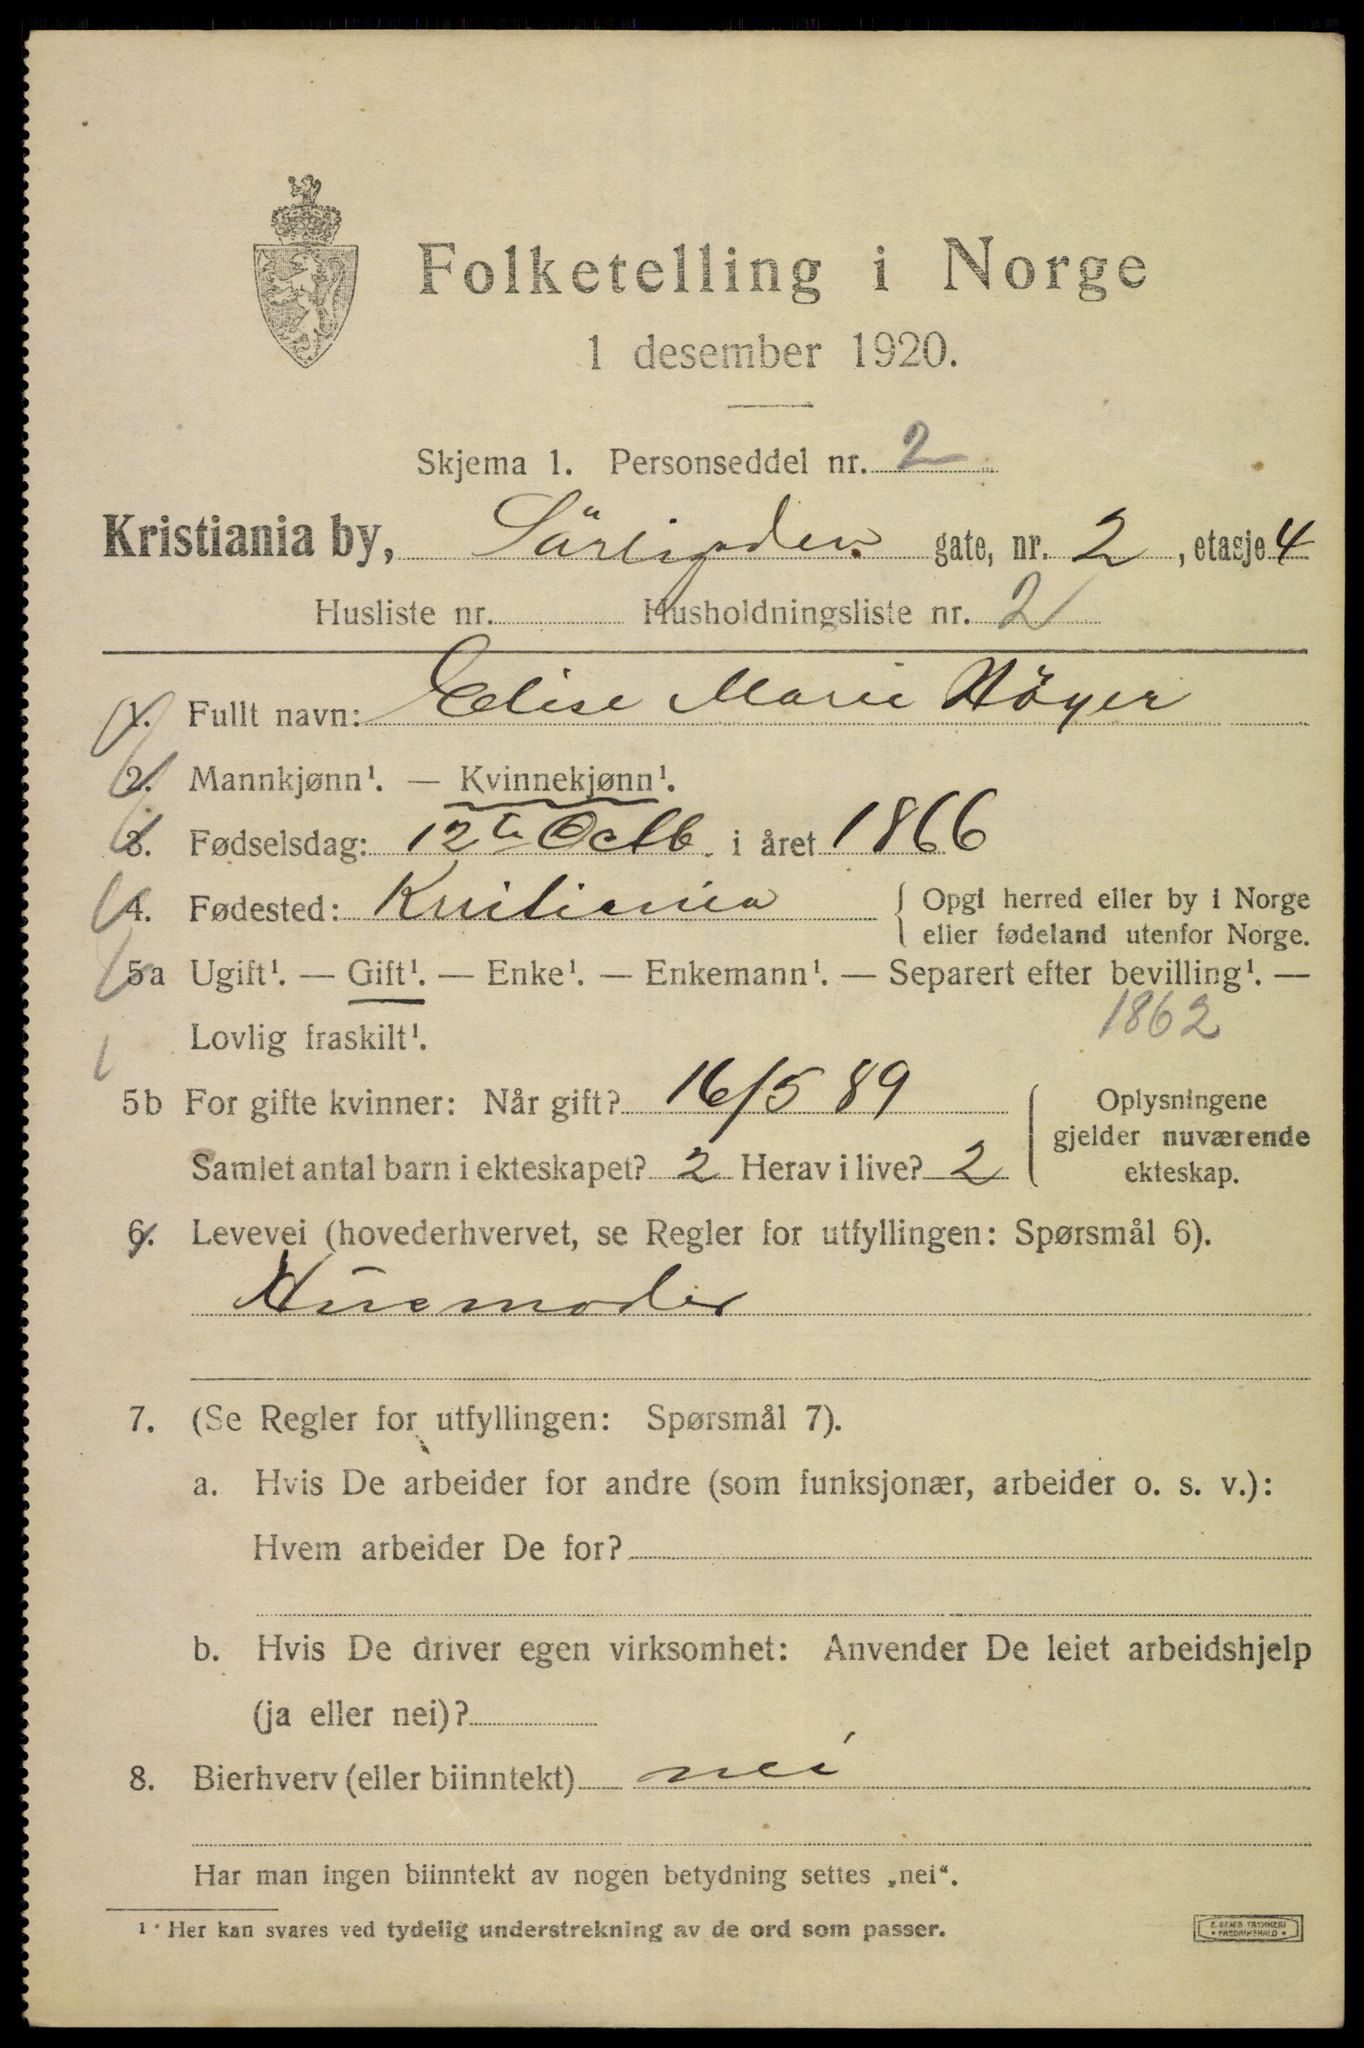 Folketelling i Norge
1 desember 1920.
Skjema 1. Personseddel nr. 2
Kristiania by, gate, nr. 2, etasje 4
Husliste nr. Husholdningsliste nr. 2
1. Fullt navn: Elise Marie Höyer
2. Mannkjønn¹. — Kvinnekjønn¹.
3. Fødselsdag: 12te Octb. i året 1866
4. Fødested: Kristiania { Opgi herred eller by i Norge
eller fødeland utenfor Norge.
5a Ugift¹. — Gift¹. — Enke¹. — Enkemann¹. — Separert efter bevilling¹. —
1862
Lovlig fraskilt¹.
5b For gifte kvinner: Når gift? 16/5 89
Samlet antal barn i ekteskapet? 2 Herav i live? 2
{ Oplysningene
gjelder nuværende
ekteskap.
6. Levevei (hovederhvervet, se Regler for utfyllingen: Spørsmål 6).
Husmoder
7. (Se Regler for utfyllingen: Spørsmål 7).
a. Hvis De arbeider for andre (som funksjonær, arbeider o. s. v.):
Hvem arbeider De for?
b. Hvis De driver egen virksomhet: Anvender De leiet arbeidshjelp
(ja eller nei)?
8. Bierhverv (eller biinntekt) nei
Har man ingen biinntekt av nogen betydning settes „nei“.
¹ Her kan svares ved tydelig understrekning av de ord som passer.
E. SEM'S TRYKKERI
• FREDRIKSHALD •